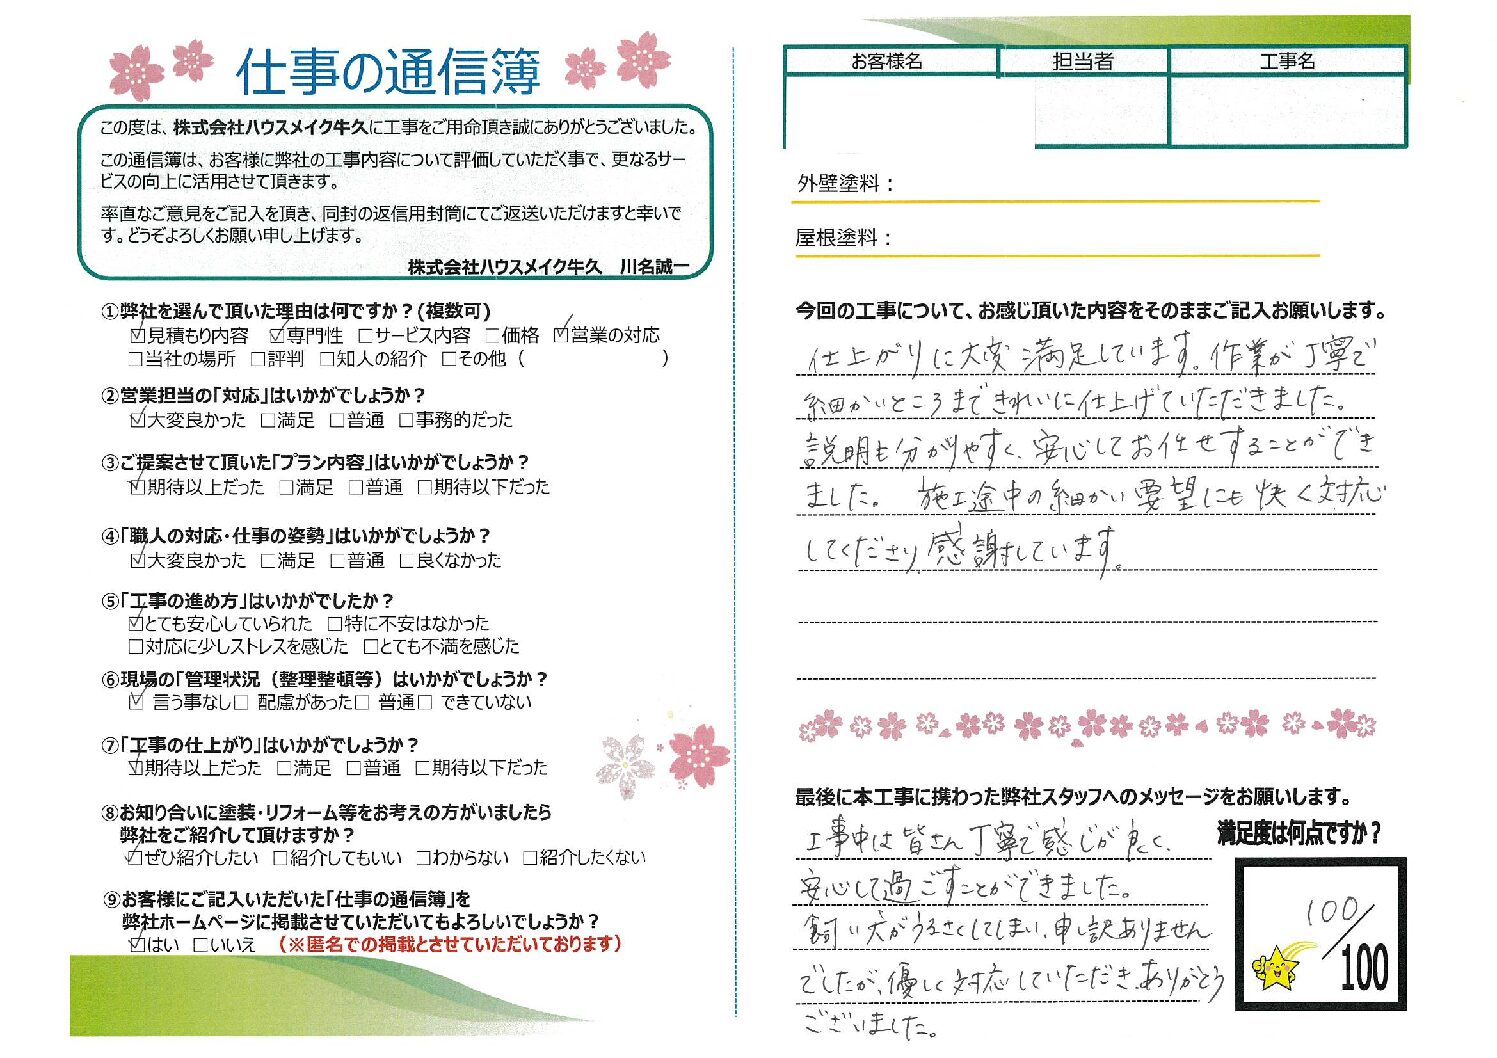 仕事の通信簿
この度は、株式会社ハウスメイク牛久に工事をご用命頂き誠にありがとうございました。
この通信簿は、お客様に弊社の工事内容について評価していただく事で、更なるサー
ビスの向上に活用させて頂きます。
率直なご意見をご記入を頂き、同封の返信用封筒にてご返送いただけますと幸いで
す。どうぞよろしくお願い申し上げます。
株式会社ハウスメイク牛久　川名誠一
①弊社を選んで頂いた理由は何ですか？(複数可)
☑見積もり内容　☑専門性　□サービス内容　□価格　☑営業の対応
□当社の場所　□評判　□知人の紹介　□その他（　　　　　　　）
②営業担当の「対応」はいかがでしょうか？
☑大変良かった　□満足　□普通　□事務的だった
③ご提案させて頂いた「プラン内容」はいかがでしょうか？
☑期待以上だった　□満足　□普通　□期待以下だった
④「職人の対応・仕事の姿勢」はいかがでしょうか？
☑大変良かった　□満足　□普通　□良くなかった
⑤「工事の進め方」はいかがでしたか？
☑とても安心していられた　□特に不安はなかった
□対応に少しストレスを感じた　□とても不満を感じた
⑥現場の「管理状況（整理整頓等）はいかがでしょうか？
☑ 言う事なし□ 配慮があった□ 普通□ できていない
⑦「工事の仕上がり」はいかがでしょうか？
☑期待以上だった　□満足　□普通　□期待以下だった
⑧お知り合いに塗装・リフォーム等をお考えの方がいましたら
弊社をご紹介して頂けますか？
☑ぜひ紹介したい　□紹介してもいい　□わからない　□紹介したくない
⑨お客様にご記入いただいた「仕事の通信簿」を
弊社ホームページに掲載させていただいてもよろしいでしょうか？
☑はい　□いいえ　（※匿名での掲載とさせていただいております）
お客様名　担当者　工事名
外壁塗料：
屋根塗料：
今回の工事について、お感じ頂いた内容をそのままご記入お願いします。
仕上がりに大変満足しています。作業が丁寧で
細かいところまできれいに仕上げていただきました。
説明も分かりやすく、安心してお任せすることができ
ました。施工途中の細かい要望にも快く対応
してくださり、感謝しています。
最後に本工事に携わった弊社スタッフへのメッセージをお願いします。
工事中は皆さん丁寧で感じが良く、
安心して過ごすことができました。
飼い犬がうるさくしてしまい、申し訳ありません
でしたが、優しく対応していただき、ありがとう
ございました。
満足度は何点ですか？
100/100